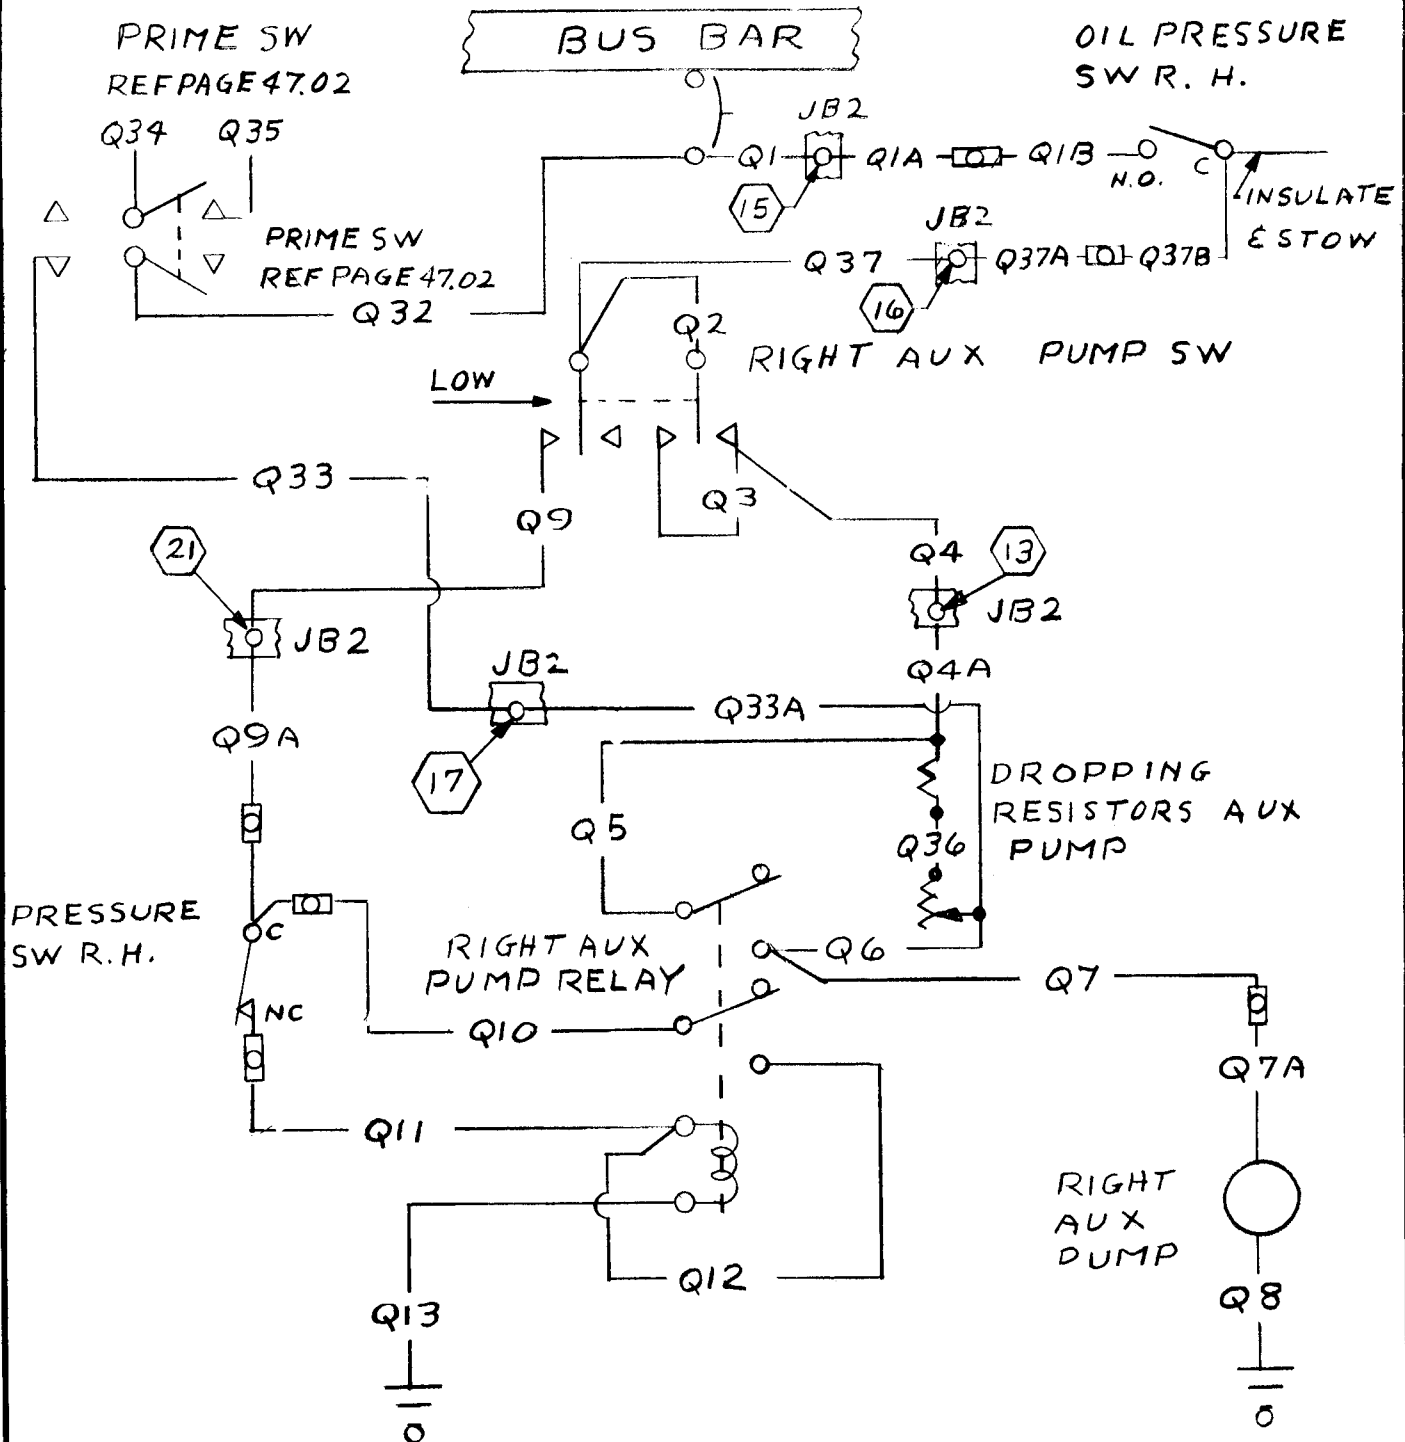 PRIME SW
REF PAGE 47.02
BUS BAR
OIL PRESSURE
SW R. H.
Q34
Q35
JB2
Q1
Q1A
Q1B
N.O.
C
15
INSULATE
& STOW
JB2
PRIME SW
REF PAGE 47.02
Q37
Q37A
Q37B
16
Q32
Q2
RIGHT AUX PUMP SW
LOW
Q33
Q3
Q9
21
Q4
13
JB2
JB2
JB2
Q4A
Q33A
Q9A
17
DROPPING
RESISTORS AUX
PUMP
Q5
Q36
PRESSURE
SW R.H.
C
RIGHT AUX
PUMP RELAY
Q6
Q7
NC
Q10
Q7A
Q11
RIGHT
AUX
PUMP
Q12
Q8
Q13